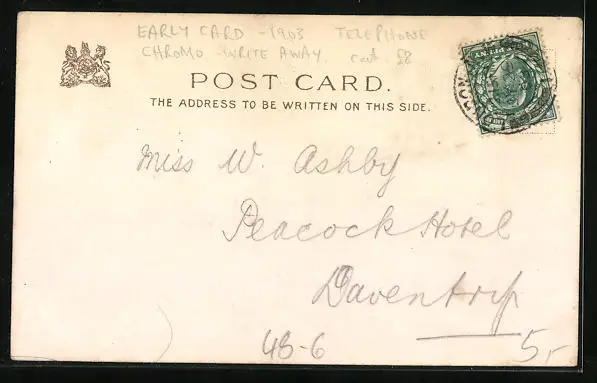 EARLY CARD - 1903 TELEPHONE
CHROMO - WRITE AWAY. cat £8
POST CARD.
THE ADDRESS TO BE WRITTEN ON THIS SIDE.
Miss W. Ashby
Peacock Hotel
Daventry
48-6
5,-